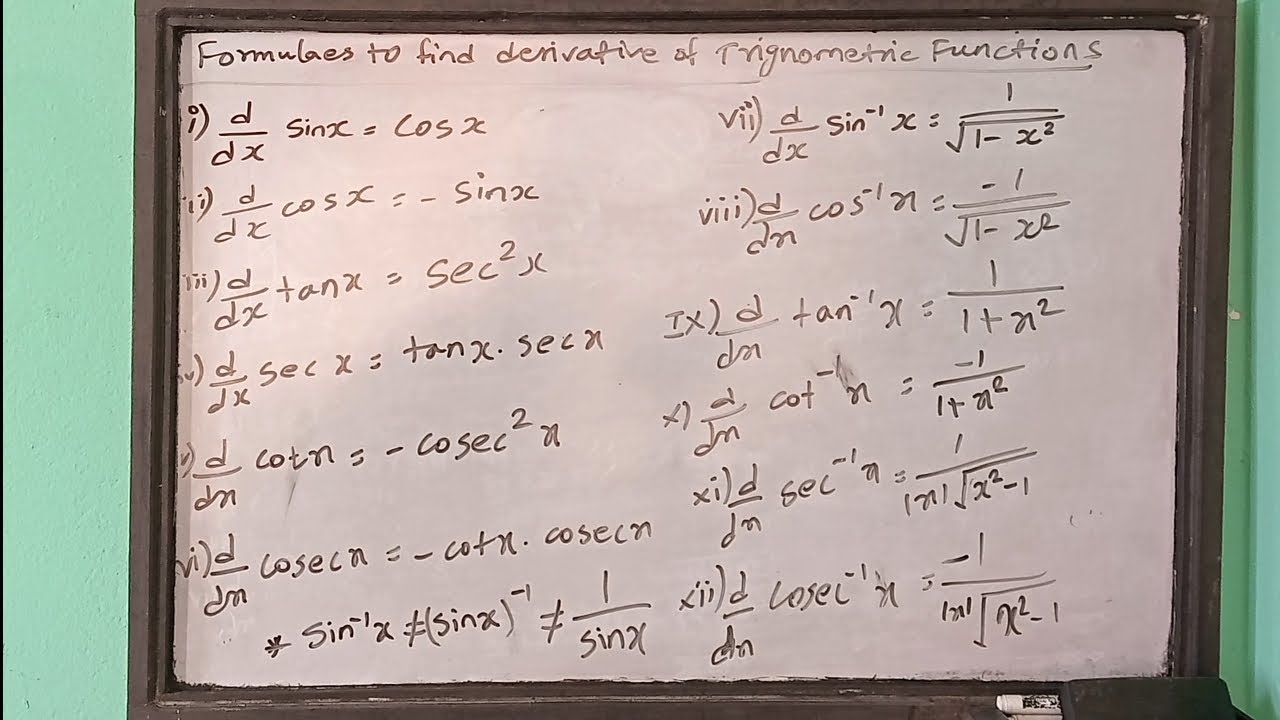 Formulaes to find derivative of Trignometric Functions
i) d/dx sinx = cosx
ii) d/dx cosx = - sinx
iii) d/dx tanx = sec²x
iv) d/dx secx = tanx. secx
v) d/dx cotx = - cosec²x
vi) d/dx cosecx = - cotx. cosecx
* sin⁻¹x ≠ (sinx)⁻¹ ≠ 1/sinx
vii) d/dx sin⁻¹x = 1/√(1- x²)
viii) d/dx cos⁻¹x = -1/√(1- x²)
IX) d/dx tan⁻¹x = 1/(1+x²)
x) d/dx cot⁻¹x = -1/(1+x²)
xi) d/dx sec⁻¹x = 1/(|x|√(x²-1))
xii) d/dx cosec⁻¹x = -1/(|x|√(x²-1))